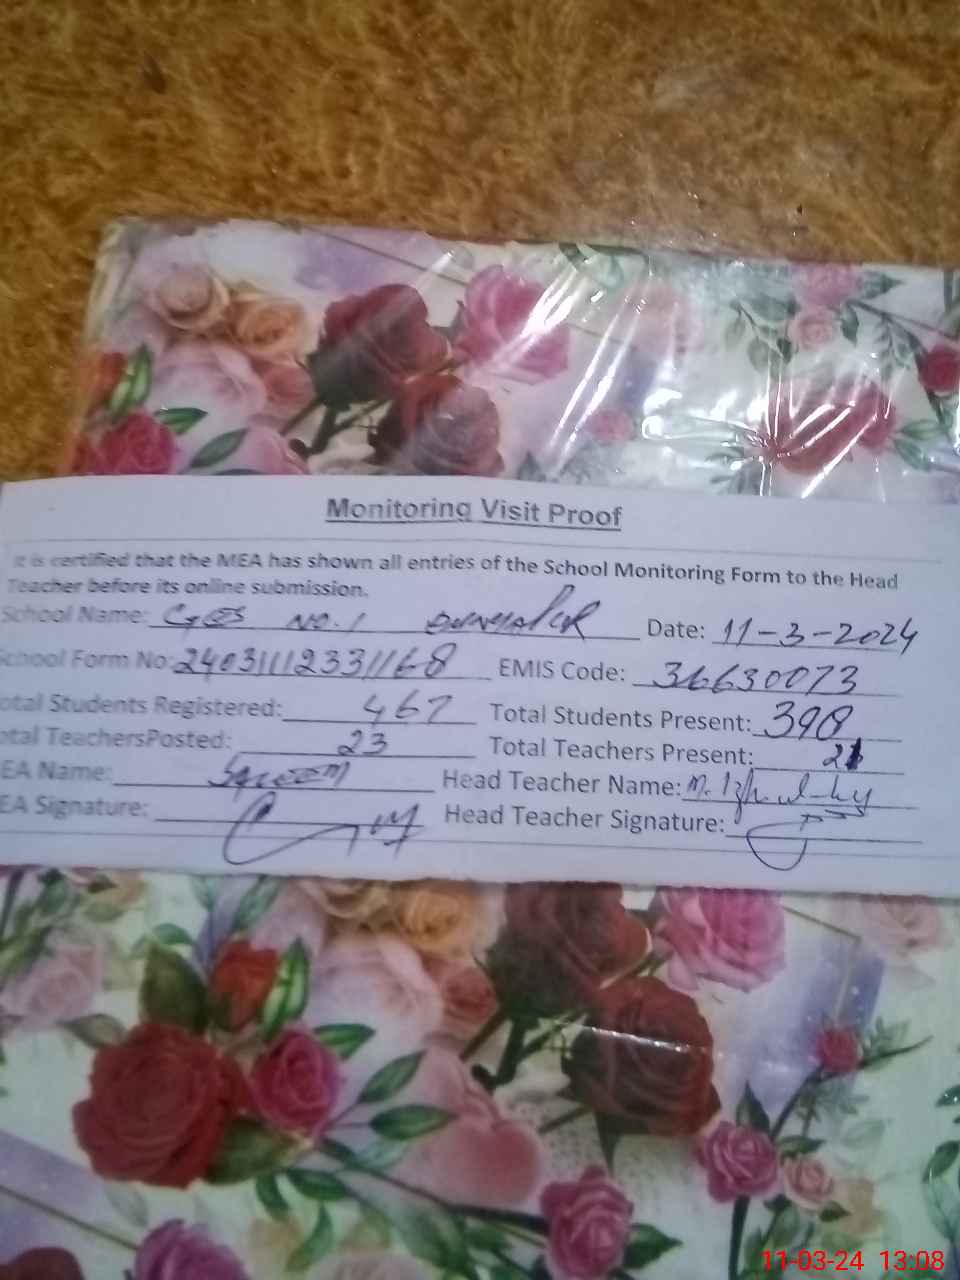 Monitoring Visit Proof
It is certified that the MEA has shown all entries of the School Monitoring Form to the Head
Teacher before its online submission.
School Name: GES NO. 1 Date: 11-3-2024
School Form No: 24031112331168 EMIS Code: 36630073
otal Students Registered: 467 Total Students Present: 398
otal TeachersPosted: 23 Total Teachers Present: 21
EA Name: Saleem Head Teacher Name: M.
EA Signature: Head Teacher Signature:
11-03-24 13:08